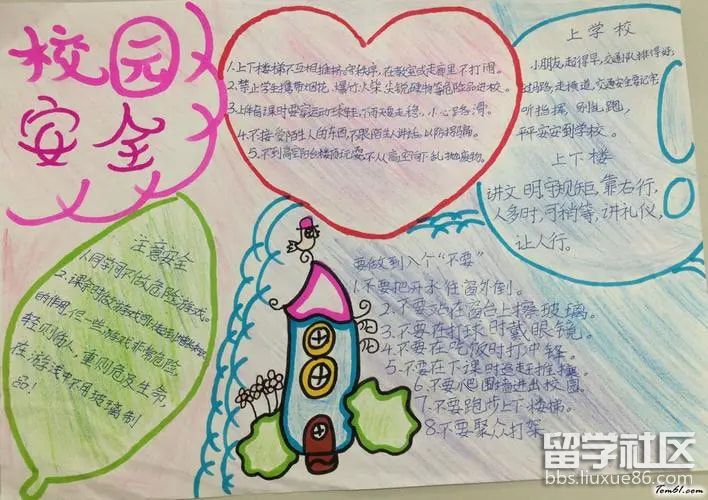 校园
安全
1.上下楼梯不互相推挤,守秩序,在教室或走廊里不打闹。
2.禁止学生携带烟花、爆竹、火柴、尖锐硬物等危险品进校。
3.上体育课时要穿运动
小心路滑。
4.不接受陌生人的东西,不跟陌生人讲话,以防拐骗。
5.不到高空阳台楼顶玩耍,不从高空向下乱抛废物。
上学校
小朋友,起得早,交通队排得好,
过马路,走横道,交通安全
听指挥,别乱跑,
平平安安到学校。
上下楼
讲文明,守规矩,靠右行,
人多时,可稍等,讲礼仪,
让人行。
注意安全
1.同学间不做危险游戏。
2.课余时做游戏可
的作用,但一些游戏非常危险
轻则伤人,重则危及生命,
在游戏中不用玻璃制
品!
要做到八个“不要”
1.不要把开水往窗外倒。
2.不要站在窗台上擦玻璃。
3.不要在打球时戴眼镜。
4.不要在吃饭时打冲锋。
5.不要在下课时追赶推搡。
6.不要爬围墙进出校园。
7.不要跑步上下楼梯。
8.不要聚众打架
留学社区
bbs.liuxue86.com
Tom61.com